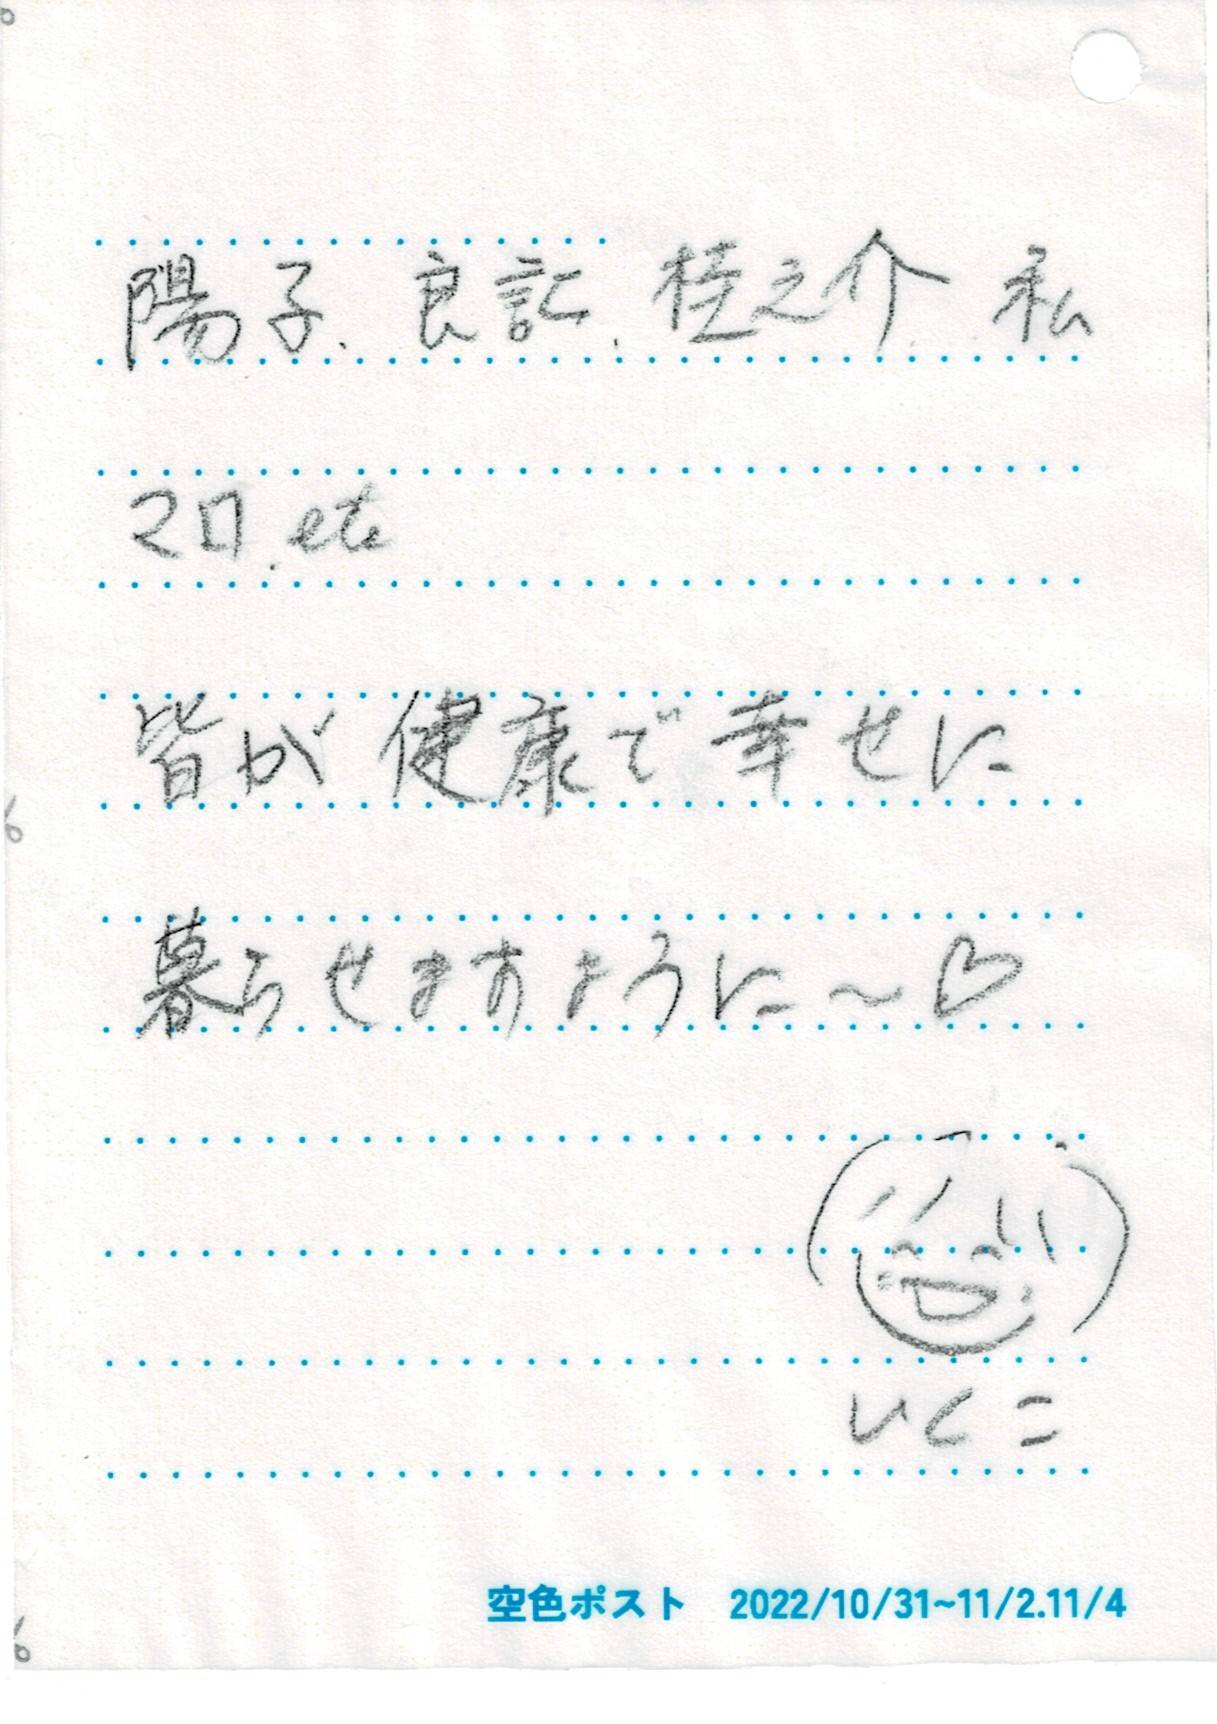 陽子、良記、桂之介 私
マロ、etc
皆が健康で幸せに
暮らせますように〜♡
いくこ
空色ポスト 2022/10/31~11/2.11/4